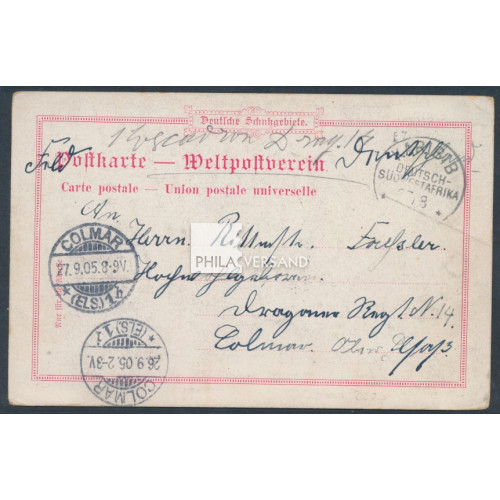 Deutsche Schutzgebiete.
1 Escadron Drag. 14
Feld Postkarte — Weltpostverein
Carte postale — Union postale universelle
DEUTSCH-
SÜDWESTAFRIKA
An Herrn Rittmstr. Faessler.
Hochwohlgeboren.
Dragoner Regt. N. 14.
Colmar. Ober Elsaß
COLMAR
27.9.05.8-9V.
* (ELS.) 1 *
COLMAR
26.9.05.2-3V.
* (ELS.) 1 *
PHILA VERSAND